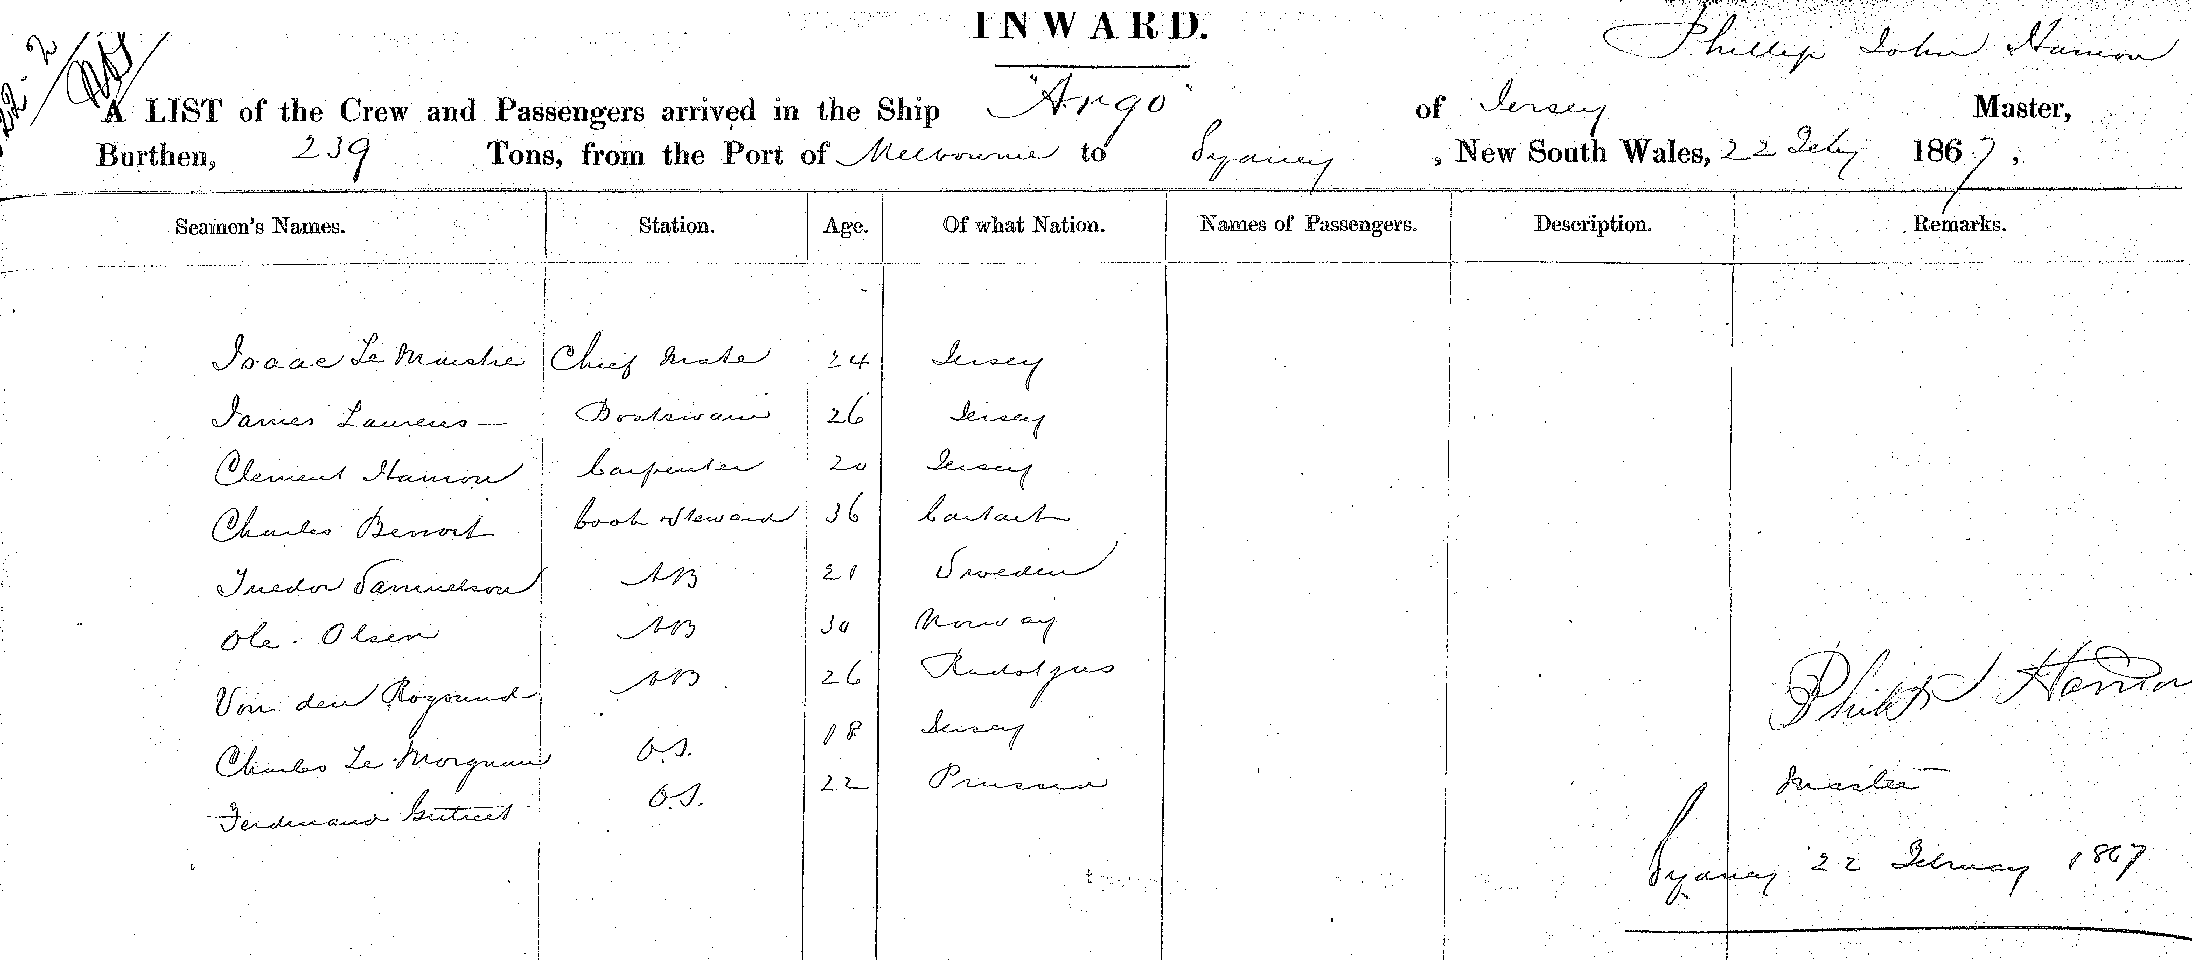 INWARD.
22-2
Phillip John Hamon
A LIST of the Crew and Passengers arrived in the Ship "Argo" of Jersey Master,
Burthen, 239 Tons, from the Port of Melbourne to Sydney, New South Wales, 22 Feby 1867,
Seamen's Names. Station. Age. Of what Nation. Names of Passengers. Description. Remarks.
Isaac Le Maistre Chief Mate 24 Jersey
James Laurens — Boatswain 26 Jersey
Clement Hamon Carpenter 20 Jersey
Charles Benoit Cook & Steward 36
Samuelson AB 21 Sweden
Ole. Olsen AB 30 Norway
Von den AB 26
Charles Le O.S. 18 Jersey
Ferdinand O.S. 22 Prussia
Philip J Hamon
Master
Sydney 22 February 1867